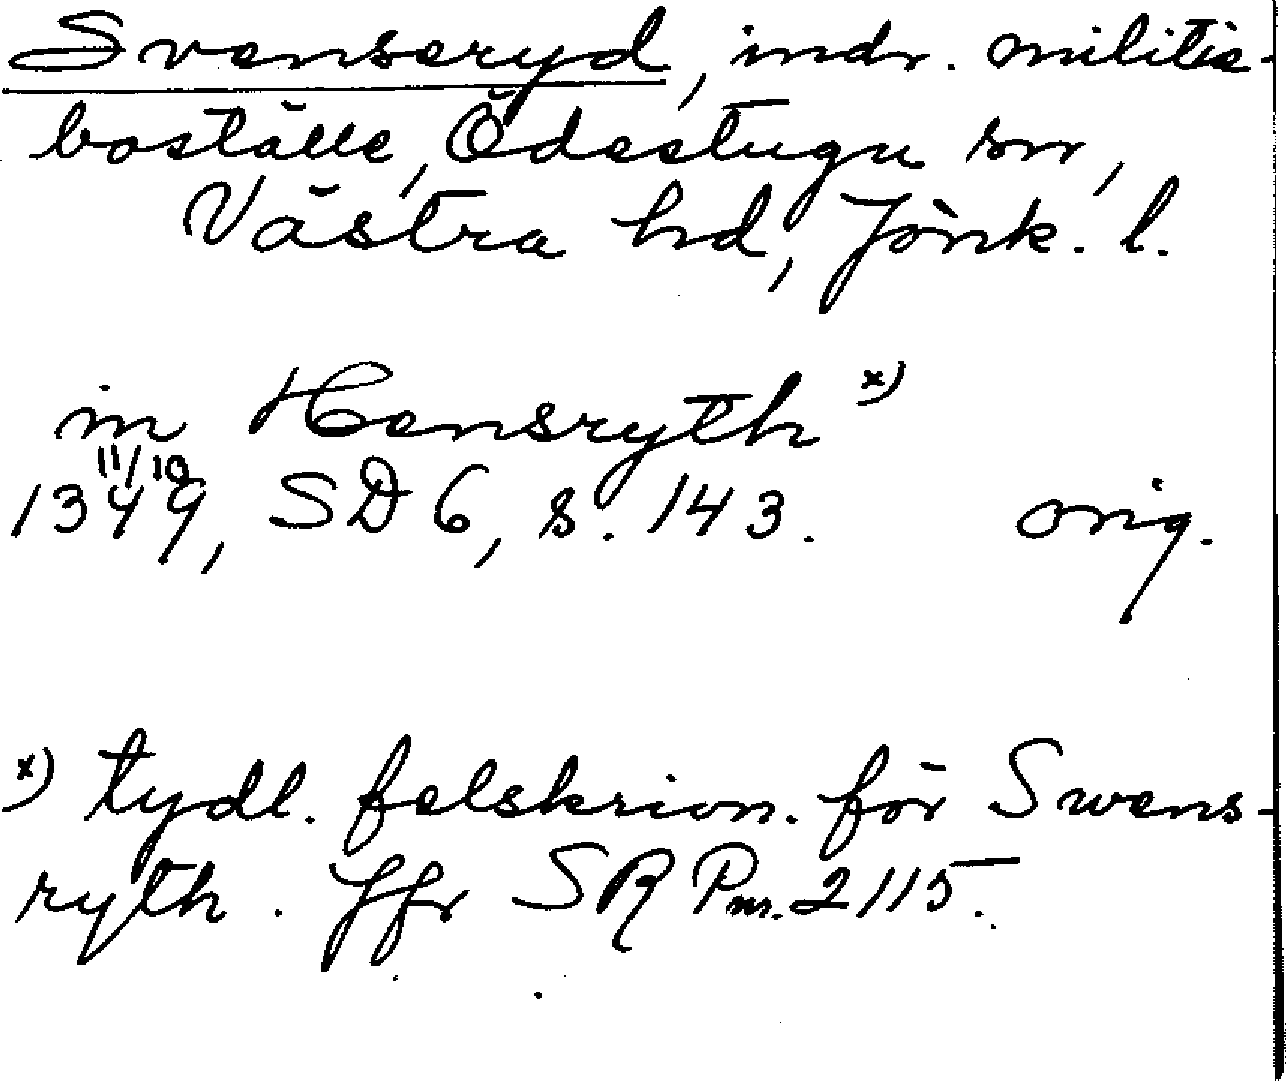 Svenseryd, indr. militie-
boställe, Ödestugu sn,
Västra hd, Jönk. l.
in Hensryth x)
11/10
1349, SD 6, s. 143. orig.
x) tydl. felskrivn. för Swens-
ryth. Jfr SRPm. 2115.